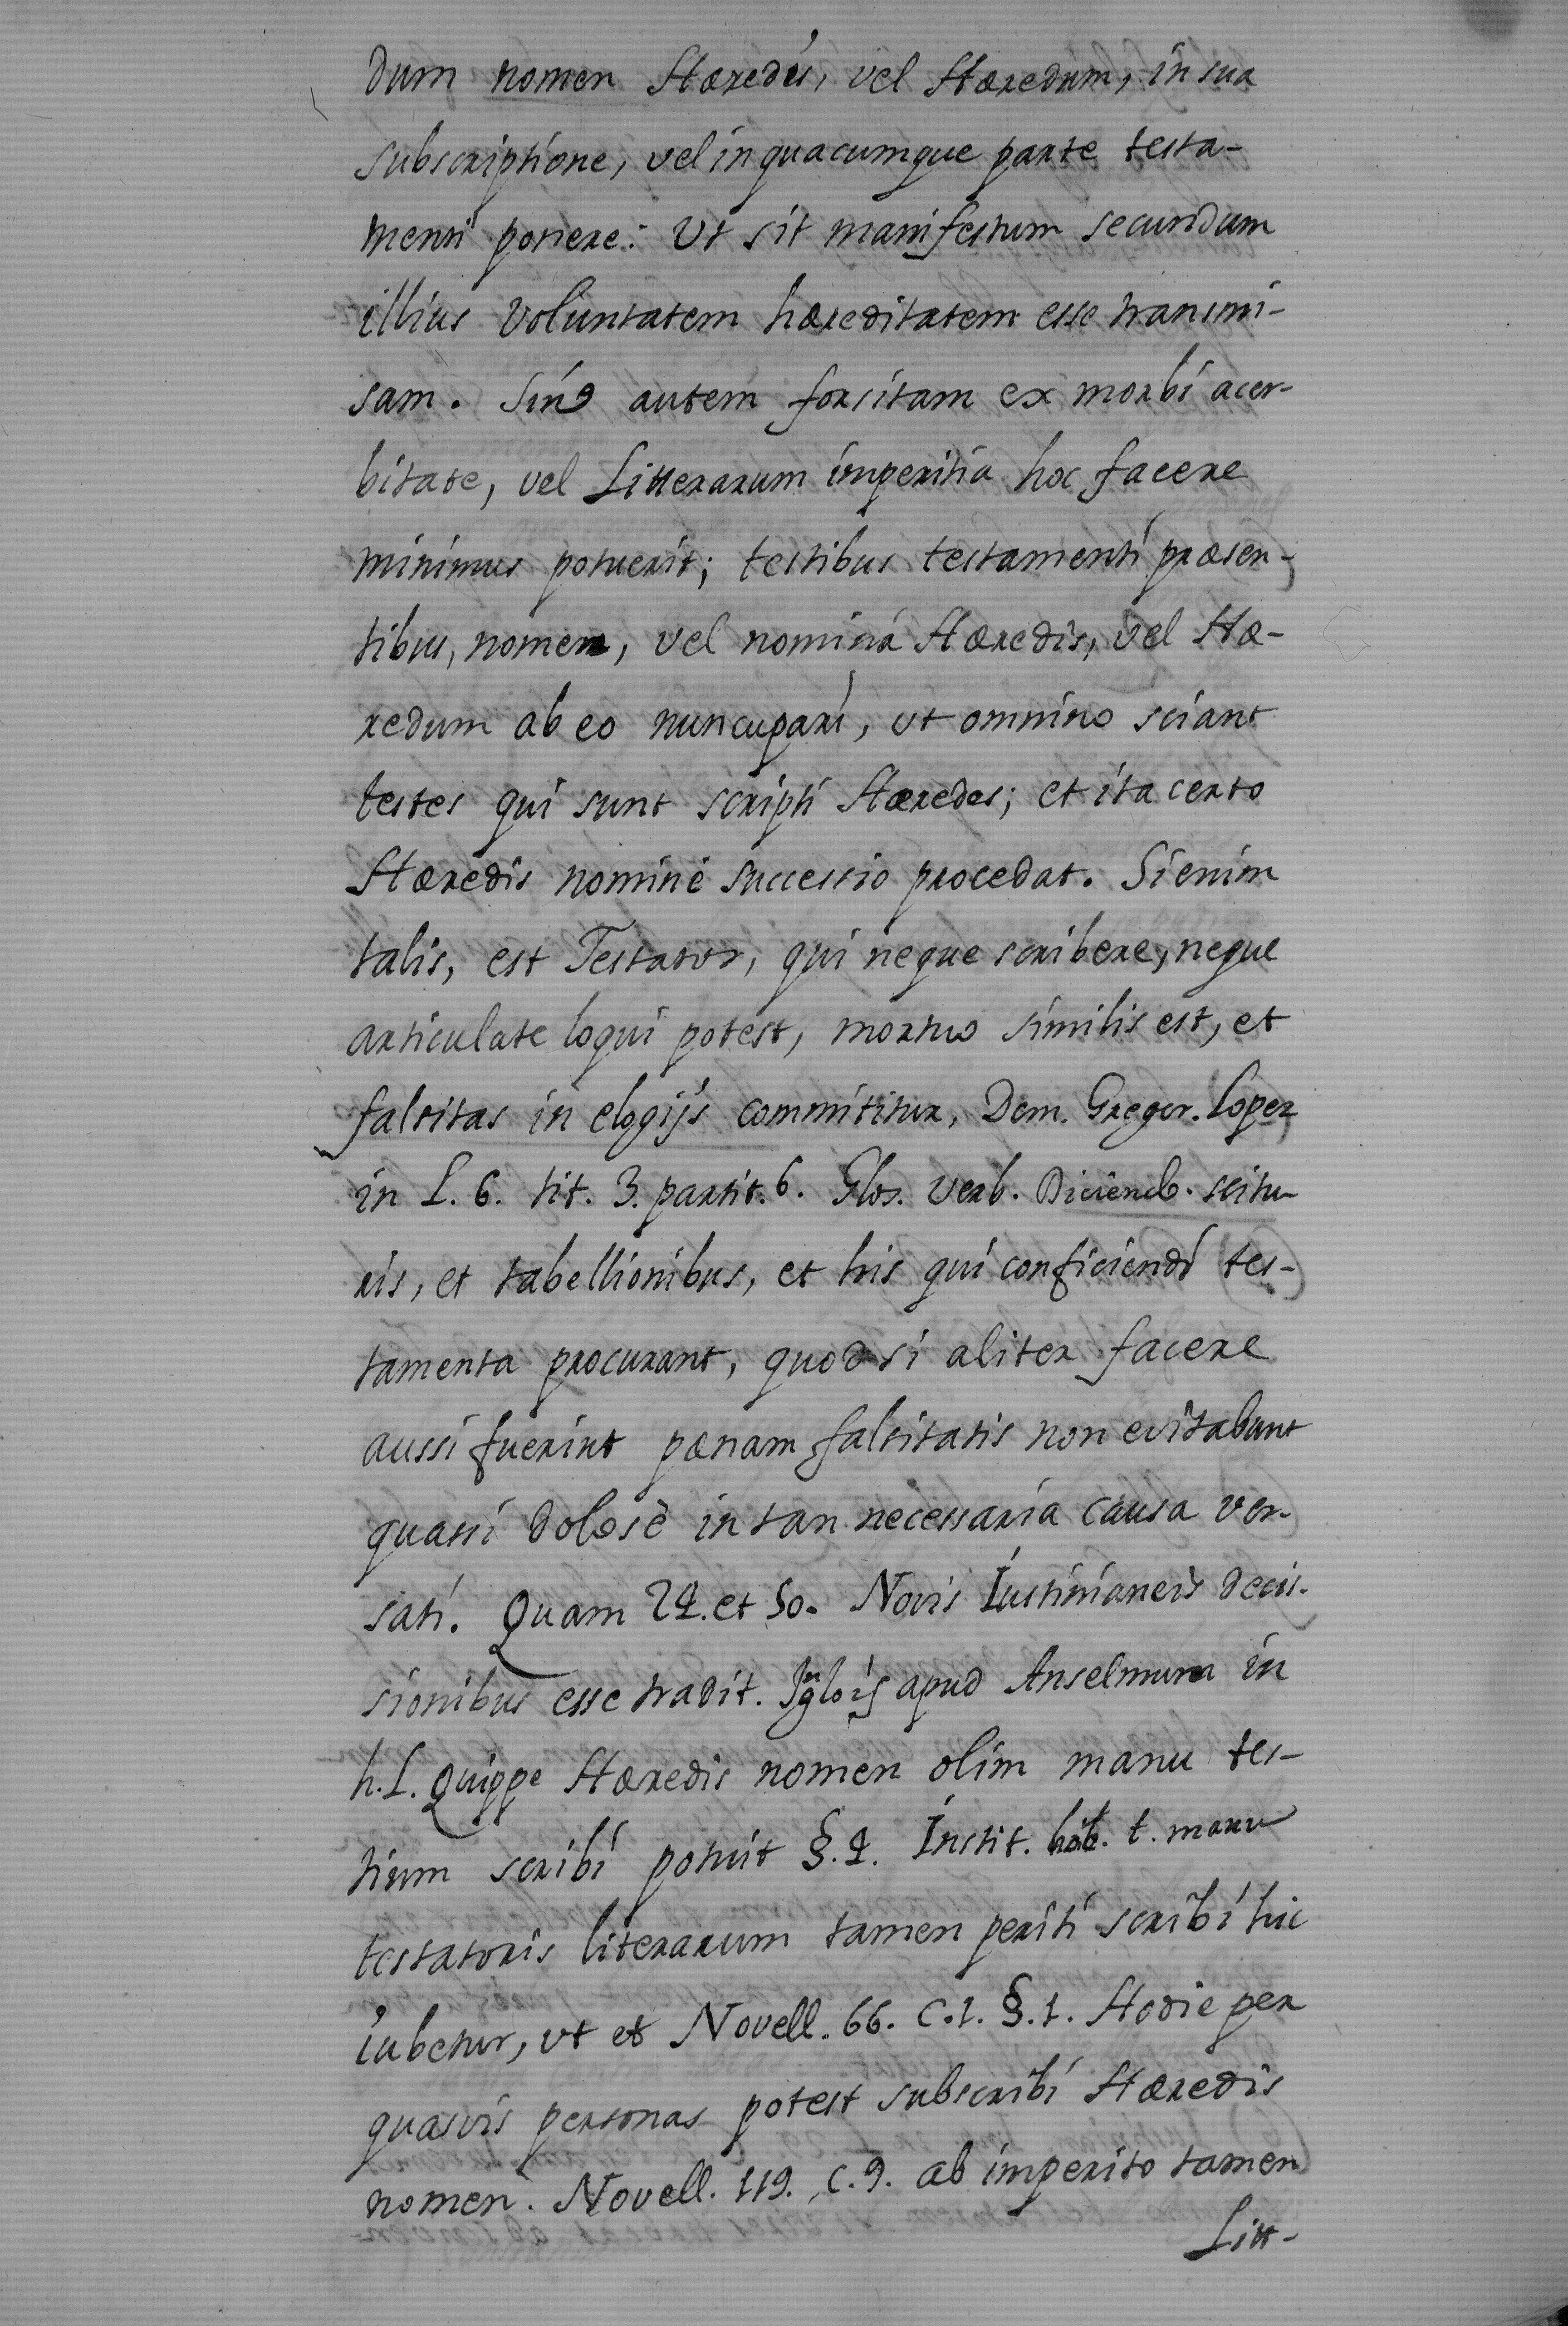 dum nomen Hæredis, vel Hæredum, in sua
subscriptione, vel in quacumque parte testa-
menti ponere: Ut sit manifestum secundum
illius voluntatem hæreditatem esse transmi-
sam. Sin autem forsitam ex morbi acer-
bitate, vel Litterarum imperitia hoc facere
minimus potuerit; testibus testamenti præsen-
tibus, nomen, vel nomina Hæredis, vel Hæ-
redum ab eo nuncupari, ut omnino sciant
testes qui sunt scripti Hæredes; et ita certo
Hæredis nomine successio procedat. Si enim
talis, est Testator, qui neque scribere, neque
articulate loqui potest, mortuo similis est, et
falsitas in elogijs commititur, Dom. Gregor. Lopez
in L. 6. tit. 3. partit. 6. Glos. verb. Diciendo. scitu-
ris, et tabellionibus, et his qui conficiendi tes-
tamenta procurant, quod si aliter facere
aussi fuerint pœnam falsitatis non evitabunt
quassi dolosè in tan necessaria causa ver-
sati. Quam 24. et 50. Novis Iustinianeis decis-
sionibus esse tradit. apud Anselmum in
h. L. Quippe Hæredis nomen olim manu tes-
tium scribi potuit §. 4. Instit. t. manu
testatoris literarum tamen periti scribi hic
iubetur, vt et Novell. 66. C. 1. §. 1. Hodie per
quasvis personas potest subscribi Hæredis
nomen. Novell. 119. C. 9. ab imperito tamen
Litt-